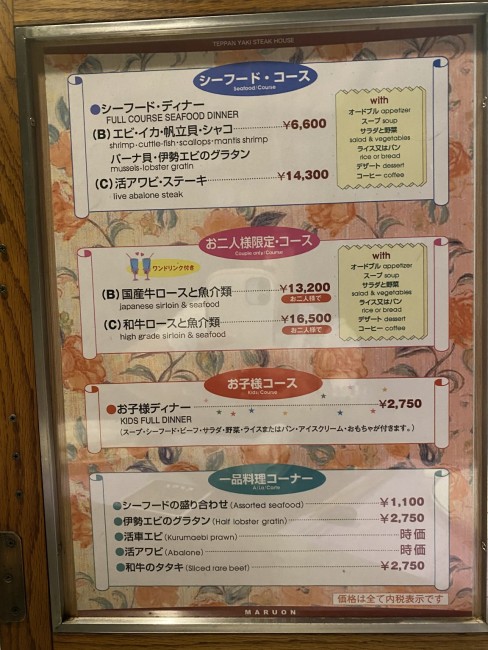 TEPPAN YAKI STEAK HOUSE
シーフード・コース
Seafood/Course
●シーフード・ディナー
FULL COURSE SEAFOOD DINNER
(B)エビ・イカ・帆立貝・シャコ ¥6,600
shrimp・cuttle-fish・scallops・mantis shrimp
パーナ貝・伊勢エビのグラタン
mussels・lobster gratin
(C)活アワビ・ステーキ ¥14,300
live abalone steak
with
オードブル appetizer
スープ soup
サラダと野菜
salad & vegetables
ライス又はパン
rice or bread
デザート dessert
コーヒー coffee
お二人様限定・コース
Couple only/Course
ワンドリンク付き
(B)国産牛ロースと魚介類 ¥13,200
japanese sirloin & seafood お二人様で
(C)和牛ロースと魚介類 ¥16,500
high grade sirloin & seafood お二人様で
with
オードブル appetizer
スープ soup
サラダと野菜
salad & vegetables
ライス又はパン
rice or bread
デザート dessert
コーヒー coffee
お子様コース
Kids Course
●お子様ディナー ¥2,750
KIDS FULL DINNER
(スープ・シーフード・ビーフ・サラダ・野菜・ライスまたはパン・アイスクリーム・おもちゃが付きます。)
一品料理コーナー
A La Carte
●シーフードの盛り合わせ(Assorted seafood) ¥1,100
●伊勢エビのグラタン(Half lobster gratin) ¥2,750
●活車エビ(Kurumaebi prawn) 時価
●活アワビ(Abalone) 時価
●和牛のタタキ(Sliced rare beef) ¥2,750
価格は全て内税表示です
MARUON